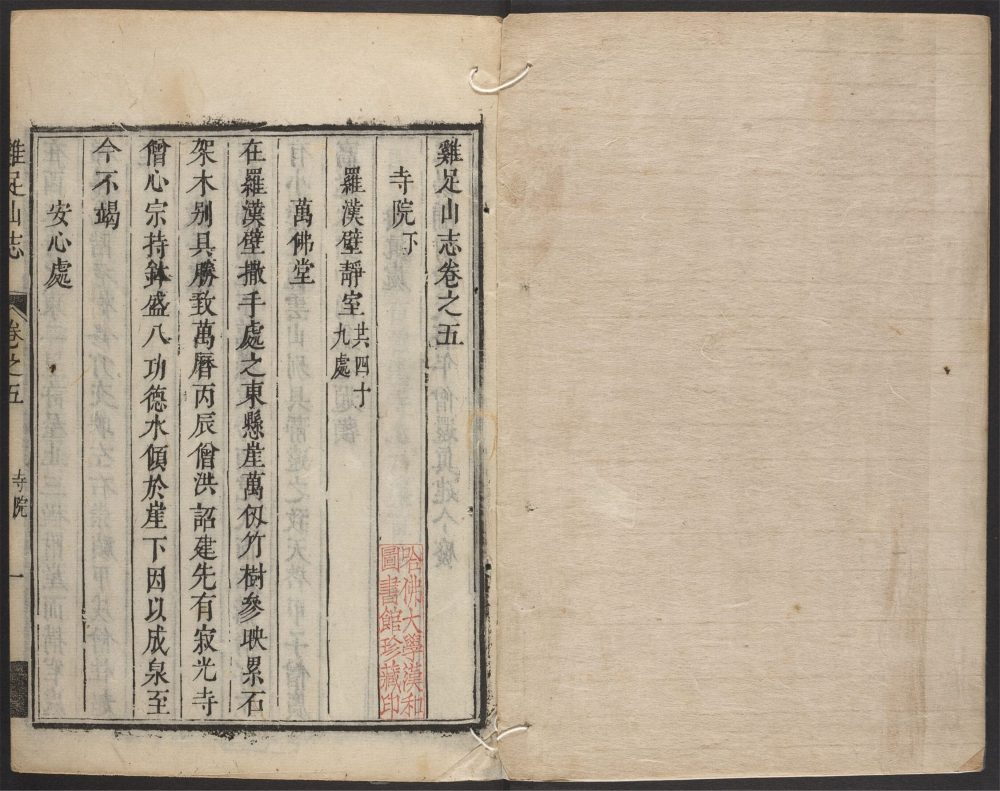 雞足山志卷之五
寺院下
羅漢壁靜室共四十九處
萬佛堂
在羅漢壁撒手處之東懸崖萬仭竹樹參映累石
架木别具勝致萬曆丙辰僧洪詔建先有寂光寺
僧心宗持鉢盛八功德水傾於崖下因以成泉至
今不竭
安心處
雞足山志
卷之五
寺院
一
哈佛大學漢和
圖書館珍藏印